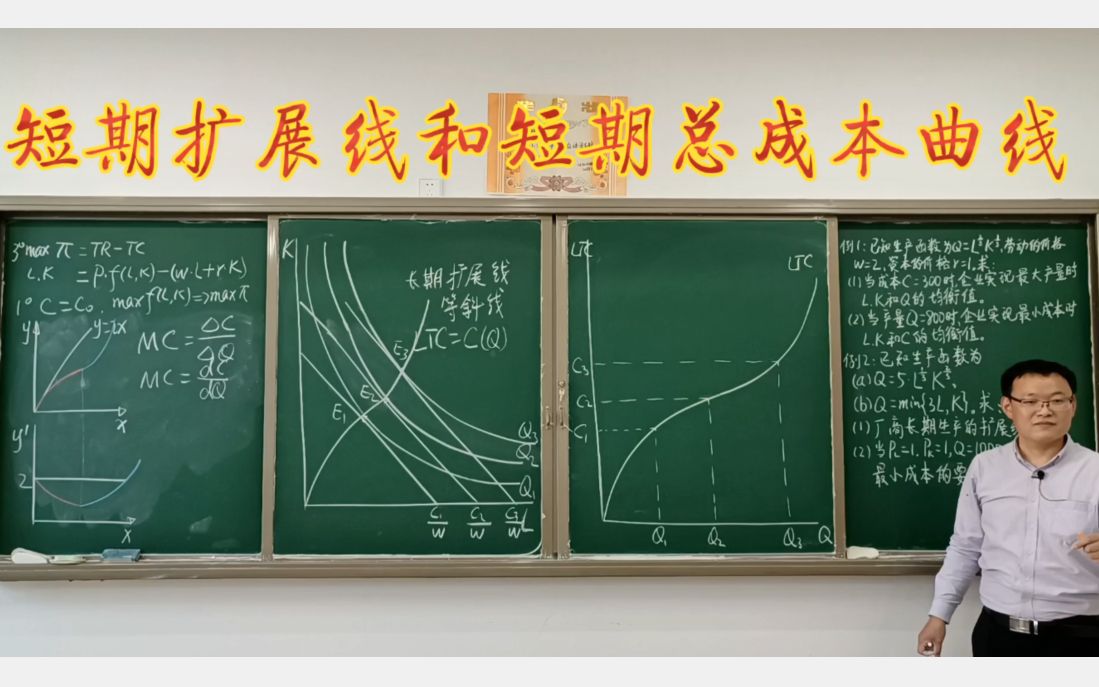 短期扩展线和短期总成本曲线
3° max π = TR-TC
L.K = P·f(L,K)-(w·L+r·K)
1° C=C₀, max f(L,K) => max π
y
y=2x
x
MC = ΔC/ΔQ
MC = dC/dQ
y'
2
x
K
长期扩展线
等斜线
LTC=C(Q)
E₃
E₂
E₁
Q₃
Q₂
Q₁
C₁/W
C₂/W
C₃/W
L
LTC
LTC
C₃
C₂
C₁
Q₁
Q₂
Q₃
Q
例1:已知生产函数为Q=L^⅔K^⅓,劳动的价格
W=2,资本的价格r=1.求:
(1)当成本C=300时,企业实现最大产量时
L.K和Q的均衡值。
(2)当产量Q=800时,企业实现最小成本时
L.K和C的均衡值。
例2:已知生产函数为
(b)Q=min{3L,K}。求:
(1)厂商长期生产的扩展线
最小成本的要